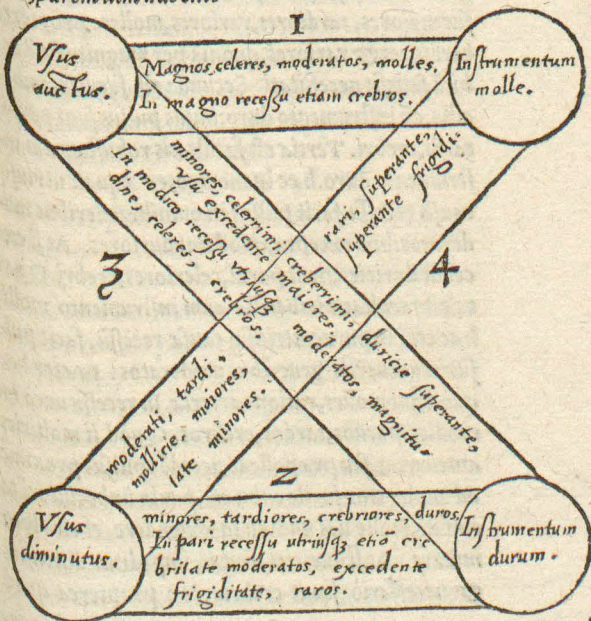 1
Vſus
auctus.
Magnos, celeres, moderatos, molles.
In magno receſſu etiam crebros.
Inſtrumentum
molle.
minores, celerrimi, creberrimi, duricie ſuperante,
In modico receſſu utriuſqꝫ moderatos magnitu-
dine, celeres, crebros.
rari ſuperante,
ſuperante frigidi-
vſu excedente maiores
moderati, tardi,
mollicie, maiores,
tate minores.
3
4
2
Vſus
diminutus.
minores, tardiores, crebriores, duros.
In pari receſſu utriuſqꝫ etiā cre
britate moderatos, excedente
frigiditate, raros.
Inſtrumentum
durum.